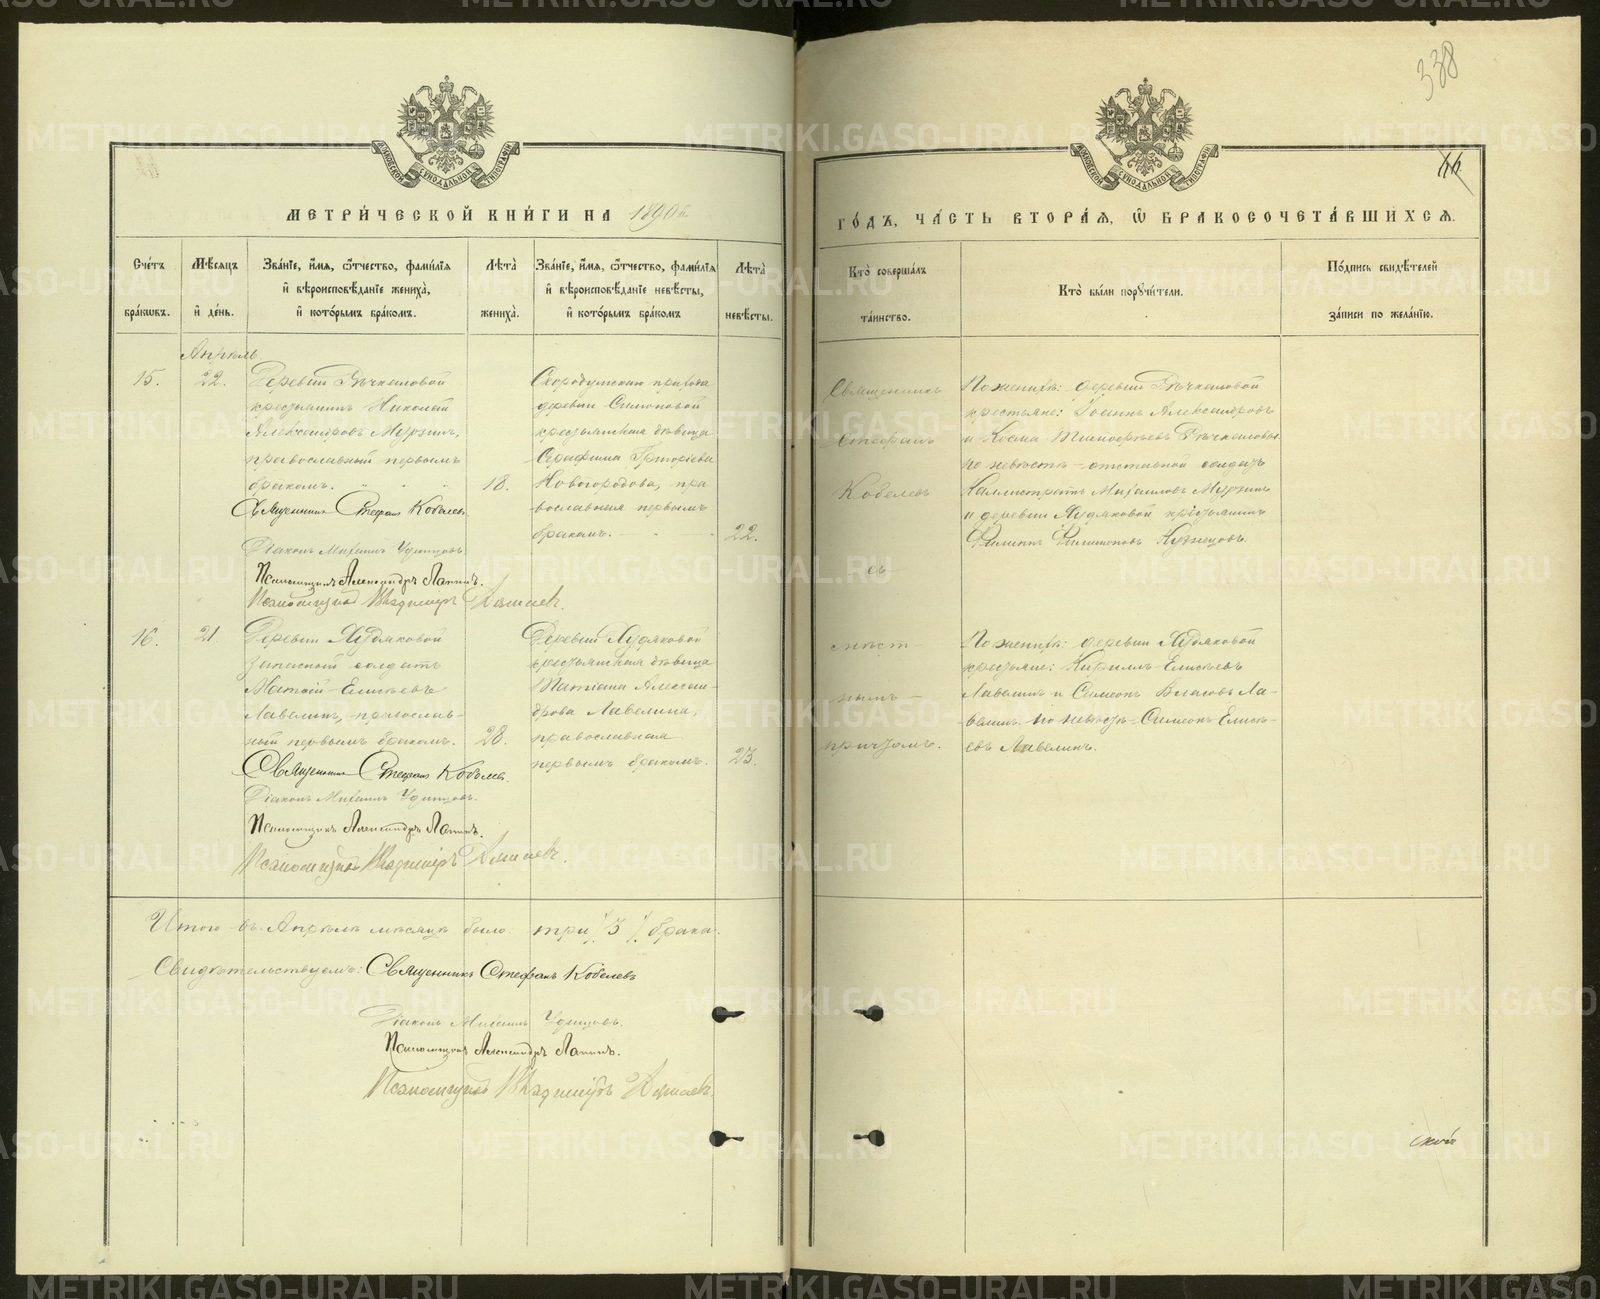 338
44
МЕТРИ́ЧЕСКОЙ КНИ́ГИ НА 1890й
ГО́ДЪ, ЧА́СТЬ ВТОРА́Я, Ѽ БРАКОСОЧЕТА́ВШИХСЯ.
Сче́тъ бра́кѡвъ.
Мѣ́сяцъ и҆ де́нь.
Зва́нїе, и҆́мя, ѻ҆́тчество, фамі́лїя
и҆ вѣроисповѣ́данїе жениха̀,
и҆ кото́рымъ бра́комъ.
Лѣ́та жениха̀.
Зва́нїе, и҆́мя, ѻ҆́тчество, фамі́лїя
и҆ вѣроисповѣ́данїе невѣ́сты,
и҆ кото́рымъ бра́комъ
Лѣ́та невѣ́сты.
Кто̀ соверша́лъ
та́инство.
Кто̀ бы́ли порꙋчи́тели.
По́дпись свидѣ́телей
за́писи по жела́нїю.
Апрѣль
15.
22.
Деревни Рѣчкаловой
крестьянинъ Николай
Александровъ Мурзинъ,
православный первымъ
бракомъ.
18.
Священникъ Стефанъ Кобелевъ
Діаконъ Михаилъ Удинцовъ
Псаломщикъ Александръ Лапинъ.
Псаломщикъ Владиміръ
Скородумскаго прихода
деревни Симоновой
крестьянская дѣвица
Серафима Григоріева
Новогородова, пра
вославная первымъ
бракомъ.
22.
Священникъ
Стефанъ
Кобелевъ
съ
мѣст-
нымъ
причтомъ.
По женихѣ: деревни Рѣчкаловой
крестьяне: Іоаннъ Александровъ
и Косма Тимофеевъ Рѣчкаловы
по невѣстѣ отставной солдатъ
Каллистратъ Михаиловъ Мурзинъ
и деревни Худяковой крестьянинъ
Филиппъ Филипповъ Кузнецовъ.
16.
21
Деревни Худяковой
запасной солдатъ
Матѳій Елисѣевъ
Лавелинъ, православ-
ный первымъ бракомъ.
28.
Священникъ Стефанъ Кобелевъ.
Діаконъ Михаилъ Удинцовъ.
Псаломщикъ Александръ Лапинъ.
Псаломщикъ Владиміръ
Деревни Худяковой
крестьянская дѣвица
Татіана Алексан-
дрова Лавелина,
православная
первымъ бракомъ.
23.
По женихѣ: деревни Худяковой
крестьяне: Кириллъ Елисѣевъ
Лавелинъ и Симеонъ Власовъ Ла-
велинъ по невѣстѣ Симеонъ Елисѣ-
евъ Лавелинъ.
Итого въ Апрѣлѣ мѣсяцѣ было три /3/ брака.
Свидѣтельствуемъ: Священникъ Стефанъ Кобелевъ
Діаконъ Михаилъ Удинцовъ.
Псаломщикъ Александръ Лапинъ.
Псаломщикъ Владиміръ
METRIKI.GASO-URAL.RU